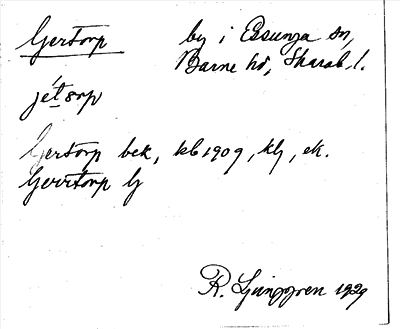 Gertorp by i Essunga sn,
Barne hd, Skarab. l.
jétorp
Gertorp bek, kb 1909, klj, ek.
Gerrtorp G
R. Ljunggren 1929